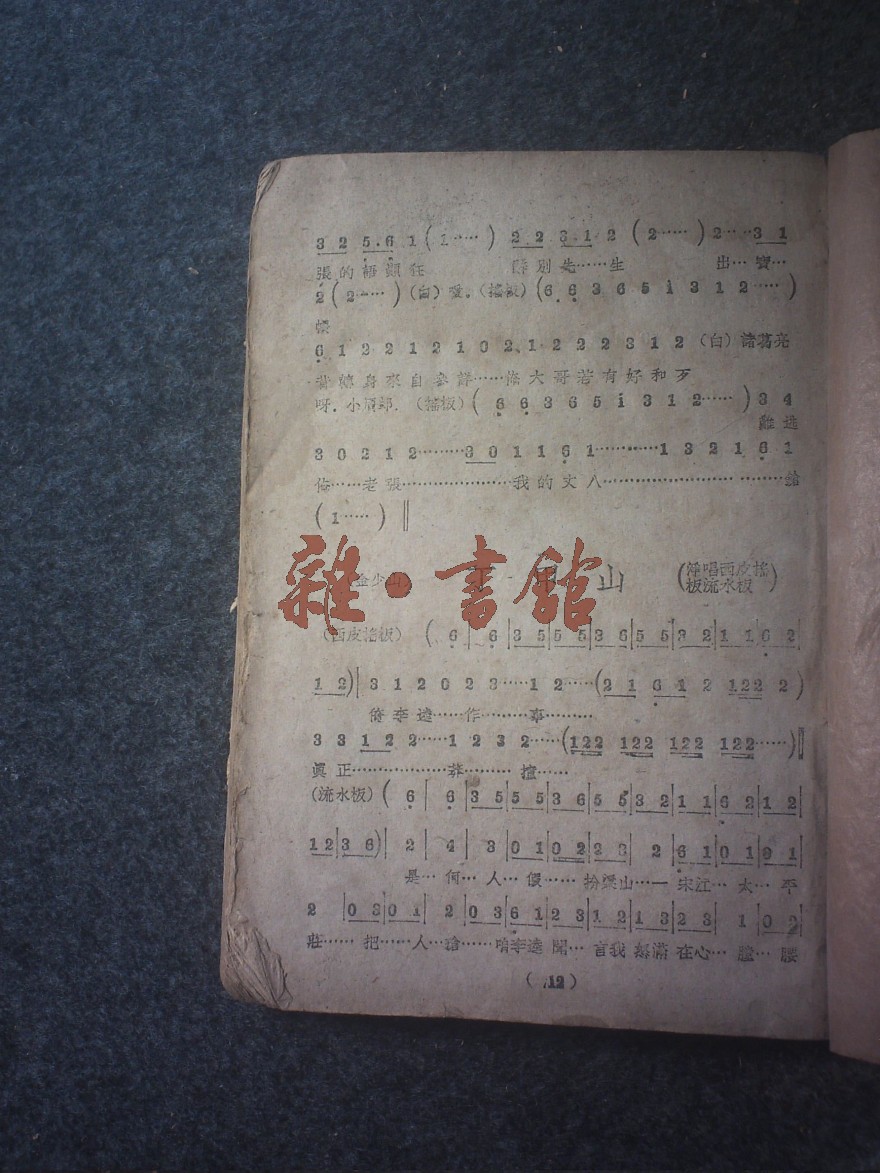 3 2 5.6 1 (1·····) 2.2 3.1 2 (2·····) 2·····3 1
張的 狂 別先······生 出···寶···
2 (2·····) (白) (搖板) (6 6 3 6 5 i 3 1 2·····)
帳
6 1 2 2 1 2 1 0 2 1 2 2 2 3 1 2 (白) 諸葛亮
轉身來自參詳······俺大哥若有好和歹
呀. 小 (搖板) (6 6 3 6 5 i 3 1 2······) 3 4
難逃
3 0 2 1 2·········3 0 1 1 6 1············1 3 2 1 6 1
俺······老張·····················我的丈八·································鎗
(1·····)
金少山 山 (淨唱西皮搖板流水板)
(西皮搖板) (6 | 6 | 3 5 | 5 5 | 3 6 | 5 5 | 3 2 | 1 1 | 6 2 |
1 2) | 3 1 2 0 2 3······1 2······(2 1 6 1 2 122 2)
俺李逵······作·········事·········
3 3 1 2 2·····1 2 3 2·····(122 122 122 122·····)
眞正··················莽········· 撞······
(流水板) (6 | 6 | 3 5 | 5 5 | 3 6 | 5 5 | 3 2 | 1 1 | 6 2 | 1 2 |
1 2 | 3 6) | 2 | 4 | 3 | 0 1 | 0 2 | 2 3 | 2 | 6 1 | 0 1 | 0 1 |
是···何···人···假······扮梁山···一 宋江···太···平
2 | 0 3 | 0 1 | 2 | 0 3 | 6 1 | 2 3 | 1 2 | 1 3 | 2 3 | 1 | 0 2 |
莊······把······人···搶······咱李逵聞···言我怒滿在心···膛···腰
(12)
雜·書館